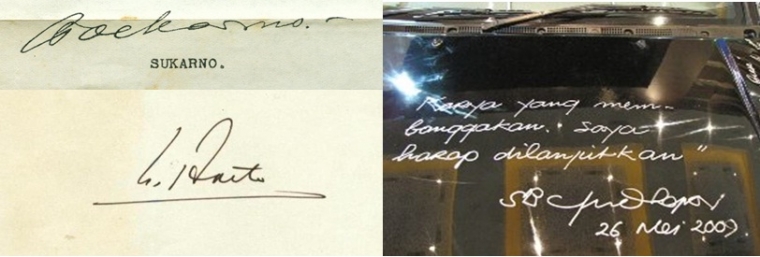 Soekarno.-
SUKARNO.
"Karya yang mem-
banggakan. Saya
harap dilanjutkan"
SB
26 Mei 2009